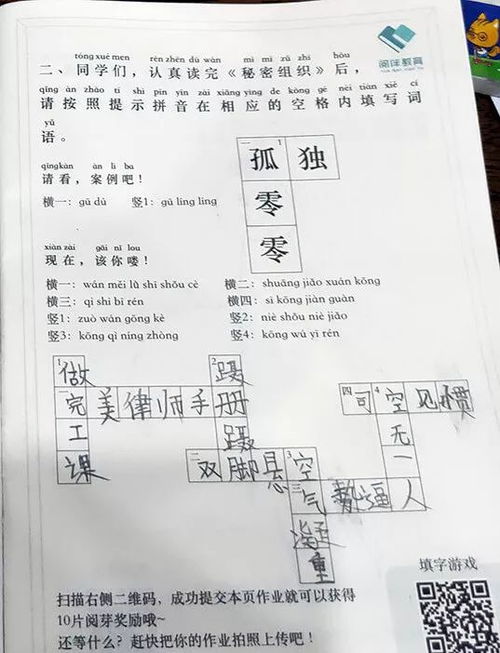 阅伴教育
tóng xué men rèn zhēn dú wán mì mì zǔ zhī hòu
二、同学们，认真读完《秘密组织》后，
qǐng àn zhào tí shì pīn yīn zài xiāng yìng de kòng gé nèi tián xiě cí
请按照提示拼音在相应的空格内填写词
yǔ
语。
qǐng kàn àn lì ba
请看，案例吧！
横一：gū dú 竖1：gū líng líng
一 1
孤独
零
零
xiàn zài gāi nǐ lou
现在，该你喽！
横一：wán měi lǜ shī shǒu cè 横二：shuāng jiǎo xuán kōng
横三：qì shì bī rén 横四：sī kōng jiàn guàn
竖1：zuò wán gōng kè 竖2：niè shǒu niè jiǎo
竖3：kōng qì níng zhòng 竖4：kōng wú yī rén
1做 2蹑
一完美律师手册 四司 4空见惯
工 蹑 无
课 二双脚悬 3空 一
三气势逼人
重
填字游戏
扫描右侧二维码，成功提交本页作业就可以获得
10片阅芽奖励哦~
还等什么？赶快把你的作业拍照上传吧！